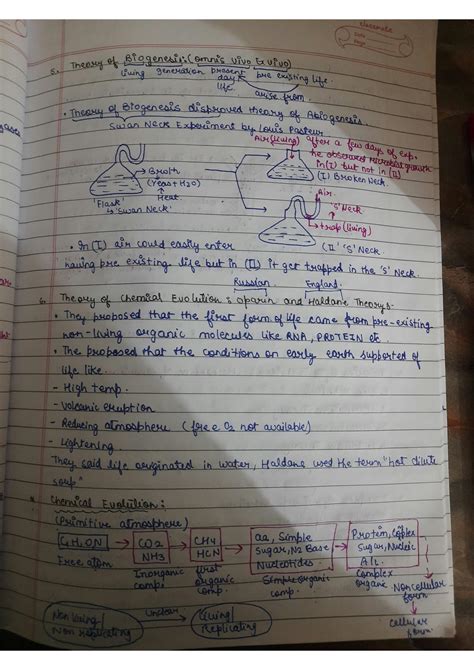 classmate
Date
Page
5. Theory of Biogenesis: (omnis vivo Ex vivo)
living generation present day life. pre existing life.
arise from.
• Theory of Biogenesis disproved theory of Abiogenesis.
Swan Neck Experiment by Louis Pasteur
Air (living) after a few days of exp.
he observed microbial growth
in (I) but not in (II)
→ Broth
(Yeast + H2O)
↑ Heat
'Flask'
↳ 'Swan Neck'
(I) Broken Neck.
Air.
'S' Neck
→ trap (living)
(II) 'S' Neck.
• In (I) air could easily enter
having pre existing life but in (II) it get trapped in the 'S' Neck.
Russian England.
6. Theory of Chemical Evolution : Oparin and Haldane Theory:-
• They proposed that the first form of life came from pre-existing
non-living organic molecules like RNA, PROTEIN etc.
• The proposed that the conditions on early earth supported of
life like..
- High temp.
- Volcanic eruption
- Reducing atmosphere (free O2 not available)
- Lightening.
They said life originated in water, Haldane used the term "hot dilute
soup"
Chemical Evolution:
(Primitive atmosphere)
C, H, O, N → CO2 NH3 → CH4 HCN → aa, Simple Sugar, N2 Base Nucleotides → Protein, Complex Sugar, Nucleic A/c.
Free atom
Inorganic comp.
first organic comp.
Simple organic comp.
Complex organic
Noncellular form
cellular form
Non living/ Non replicating → Unclear → Living/ Replicating